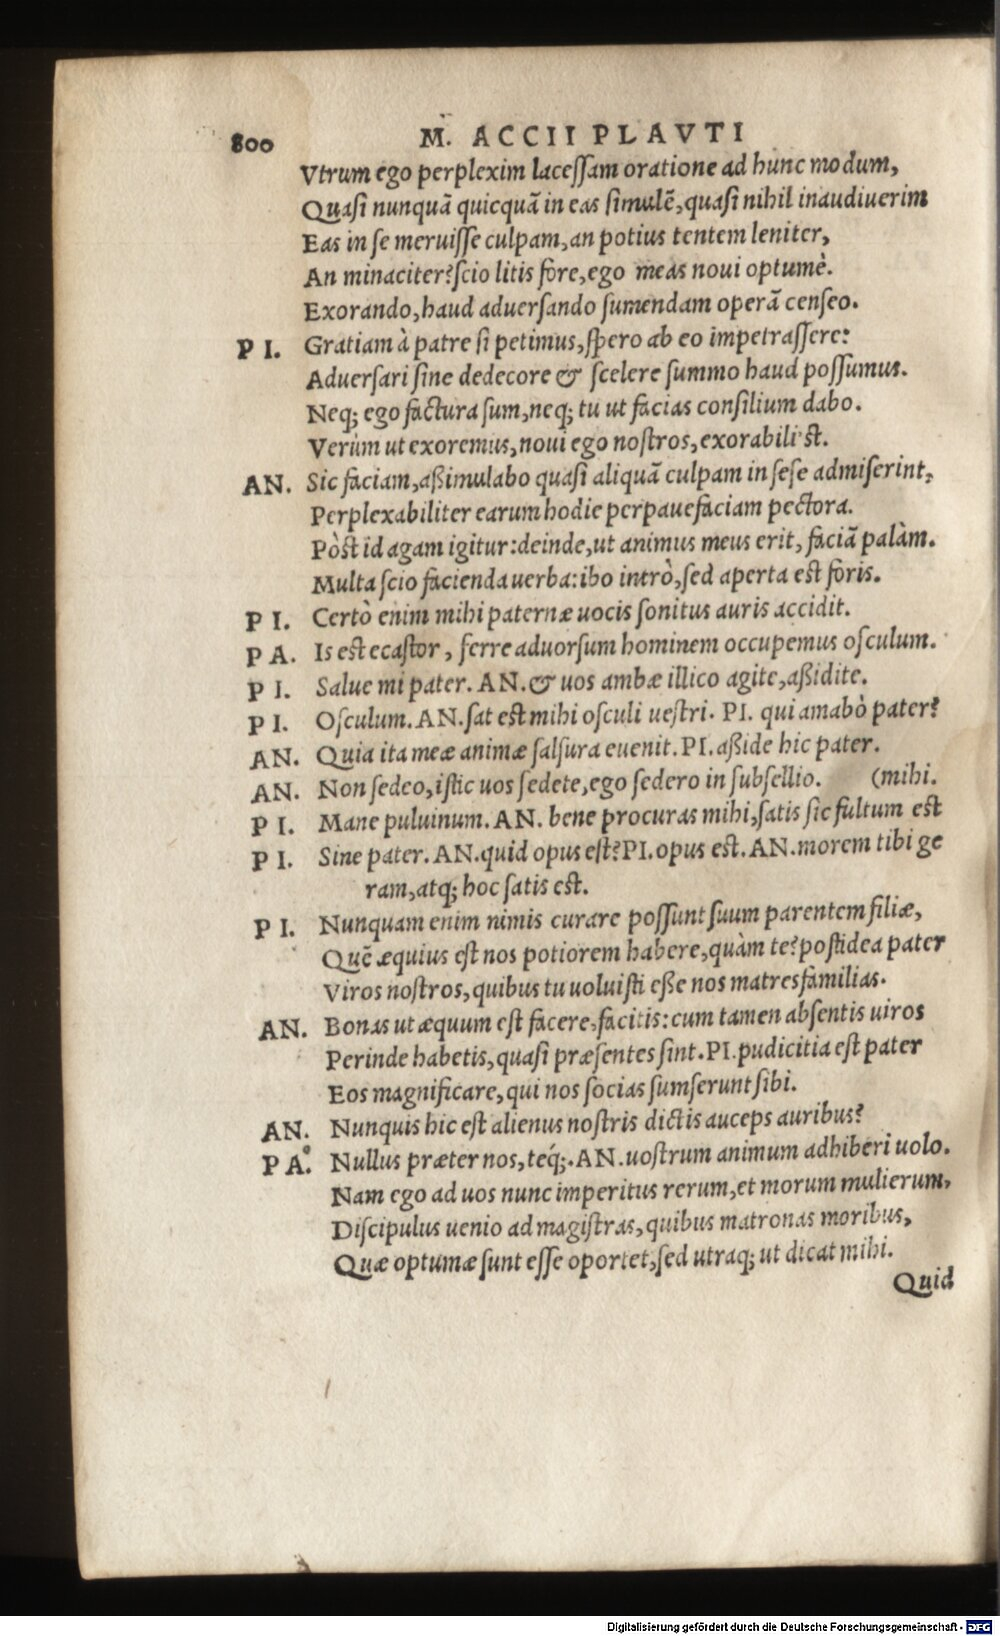 800 M. ACCII PLAVTI
Vtrum ego perplexim lacessam oratione ad hunc modum,
Quasi nunquã quicquã in eas simulẽ, quasi nihil inaudiuerim
Eas in se meruisse culpam, an potius tentem leniter,
An minaciter? scio litis fore, ego meas noui optumè.
Exorando, haud aduersando sumendam operã censeo.
PI. Gratiam à patre si petimus, spero ab eo impetrassere:
Aduersari sine dedecore & scelere summo haud possumus.
Neq; ego factura sum, neq; tu ut facias consilium dabo.
Verùm ut exoremus, noui ego nostros, exorabili'st.
AN. Sic faciam, aßimulabo quasi aliquã culpam in sese admiserint,
Perplexabiliter earum hodie perpauefaciam pectora.
Pòst id agam igitur: deinde, ut animus meus erit, faciã palàm.
Multa scio facienda uerba: ibo intrò, sed aperta est foris.
PI. Certò enim mihi paternæ uocis sonitus auris accidit.
PA. Is est ecastor, ferre aduorsum hominem occupemus osculum.
PI. Salue mi pater. AN. & uos ambæ illico agite, aßidite.
PI. Osculum. AN. sat est mihi osculi uestri. PI. qui amabò pater?
AN. Quia ita meæ animæ salsura euenit. PI. aßide hic pater.
AN. Non sedeo, istic uos sedete, ego sedero in subsellio. (mihi.
PI. Mane puluinum. AN. bene procuras mihi, satis sic fultum est
PI. Sine pater. AN. quid opus est? PI. opus est. AN. morem tibi ge
ram, atq; hoc satis est.
PI. Nunquam enim nimis curare possunt suum parentem filiæ,
Quẽ æquius est nos potiorem habere, quàm te? postidea pater
Viros nostros, quibus tu uoluisti eße nos matresfamilias.
AN. Bonas ut æquum est facere, facitis: cum tamen absentis uiros
Perinde habetis, quasi præsentes sint. PI. pudicitia est pater
Eos magnificare, qui nos socias sumserunt sibi.
AN. Nunquis hic est alienus nostris dictis auceps auribus?
PA. Nullus præter nos, teq́;. AN. uostrum animum adhiberi uolo.
Nam ego ad uos nunc imperitus rerum, et morum mulierum,
Discipulus uenio ad magistras, quibus matronas moribus,
Quæ optumæ sunt esse oportet, sed utraq; ut dicat mihi.
Quid
Digitalisierung gefördert durch die Deutsche Forschungsgemeinschaft - DFG